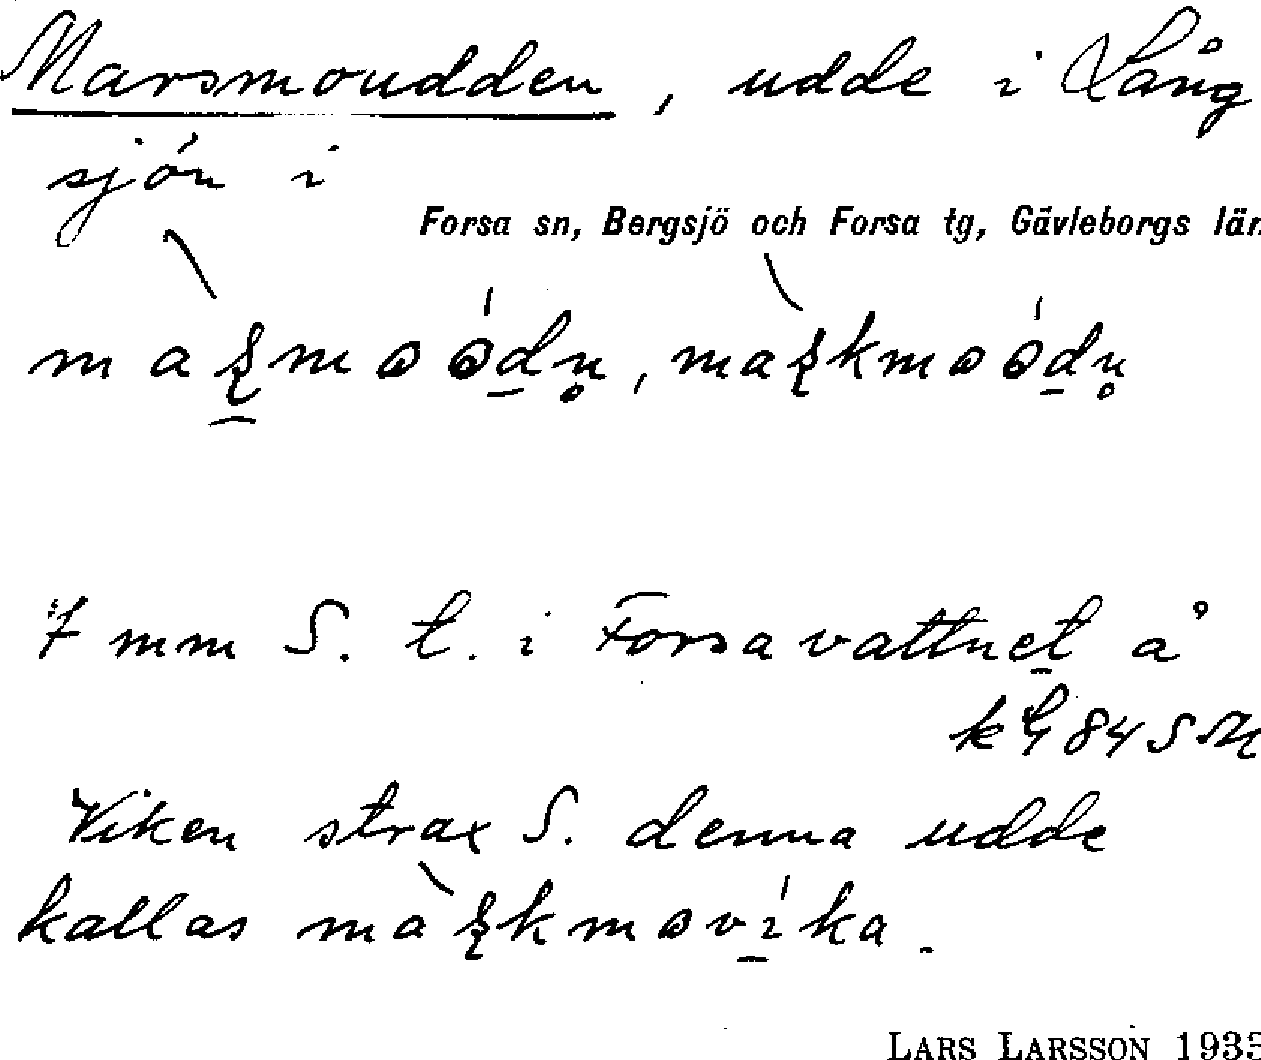 Marsmoudden, udde i Lång
sjön i
Forsa sn, Bergsjö och Forsa tg, Gävleborgs län
7 mm S. t. i Forsavattnet å
84 S
Viken strax S. denna udde
kallas
LARS LARSSON 1935